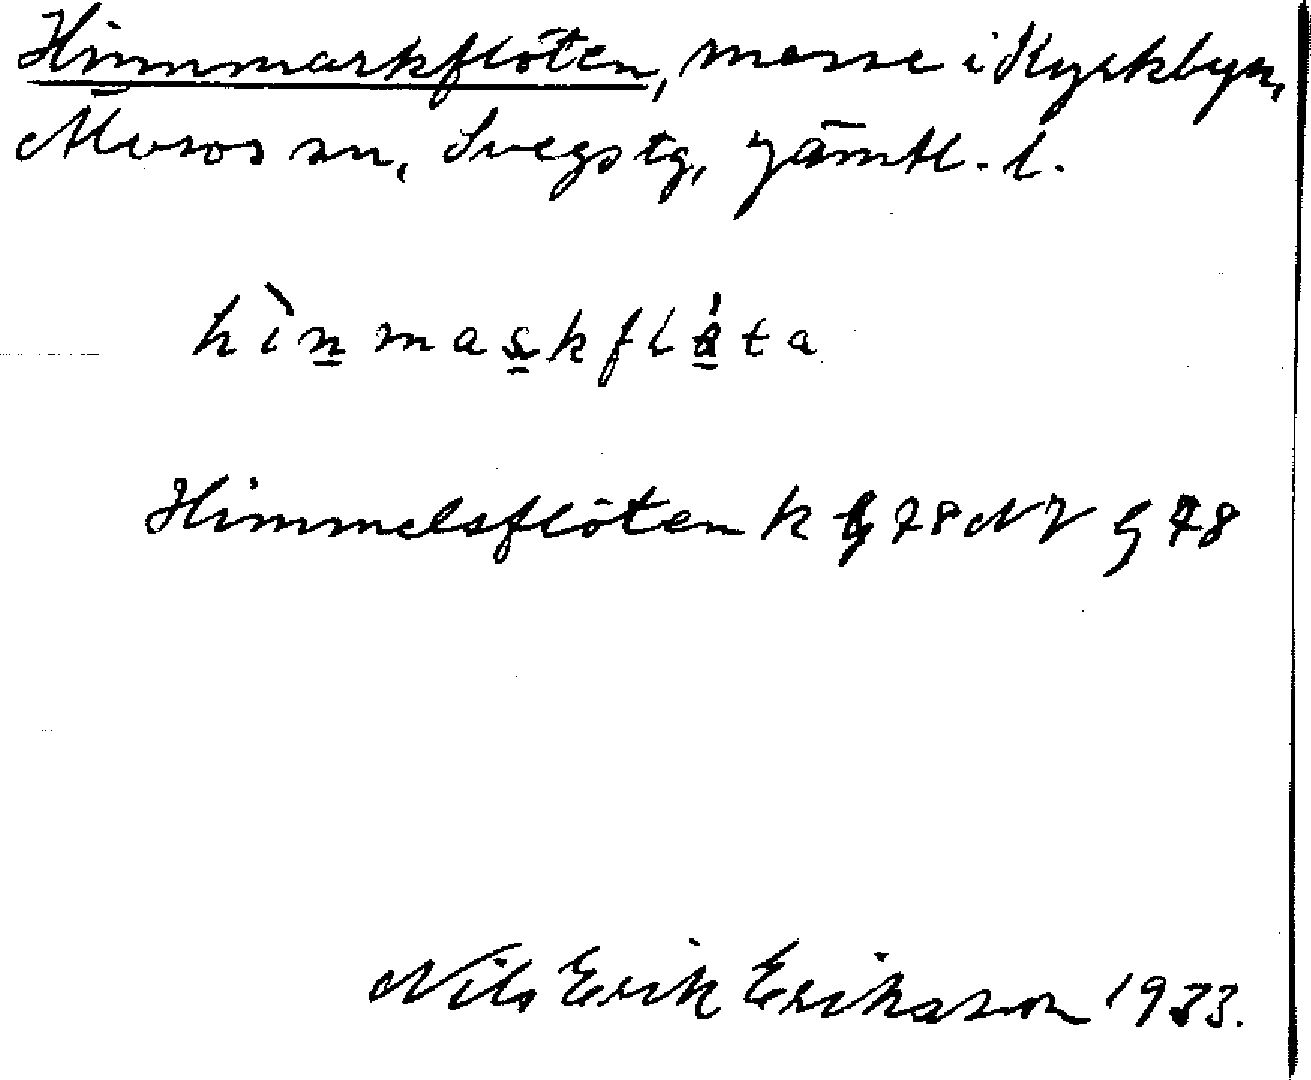 Hinnmarkflöten, mosse i Kyrkbyn,
Älvros sn, Svegs tg, Jämtl. l.
hìnmaskfløta
Himmelsflöten k G 78 NV G 78
Nils Erik Eriksson 1933.